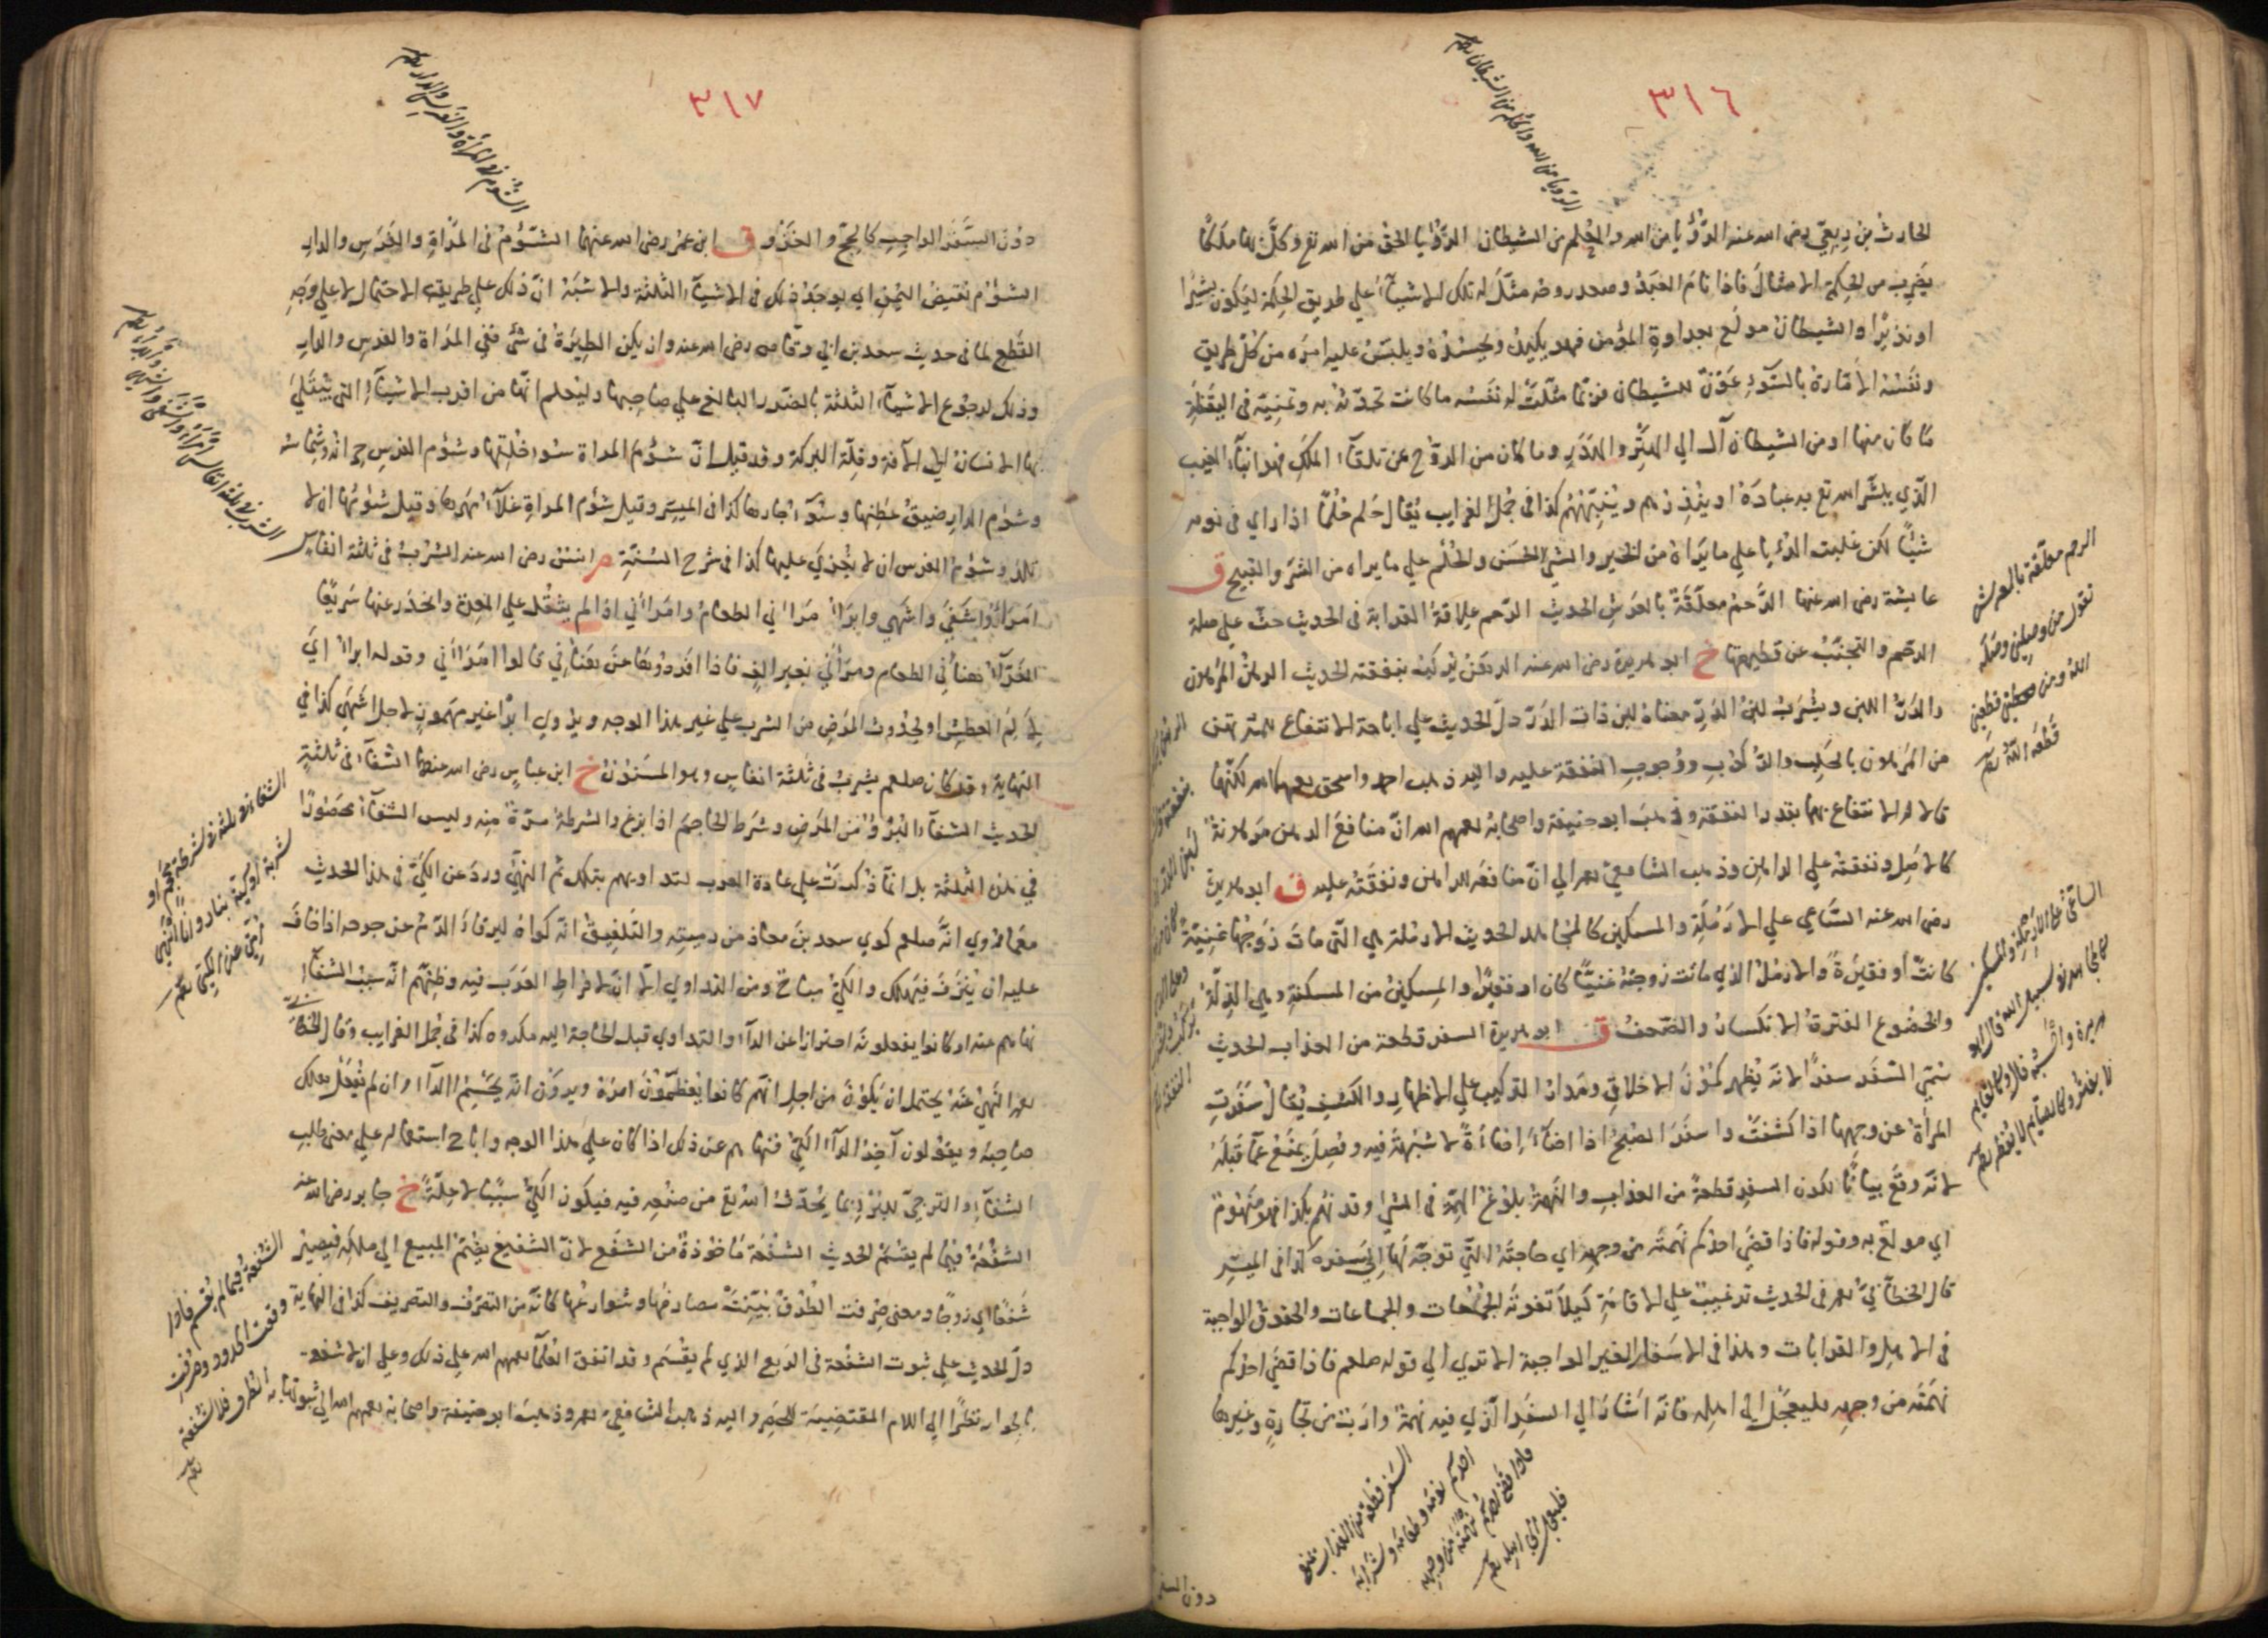 ٣١٦
الرؤيا من الله والحلم من الشيطان
الحارث بن ربعي رضي الله عنه الرؤيا من الله والحلم من الشيطان الرؤيا الحق من الله تع وكل بها ملكا
يضرب من الحكمة الامثال فاذا نام العبد مثل له تلك الاشياء على طريق الحكمة ليكون بشيرا
او نذيرا والشيطان مولع بعداوة المؤمن فهو يكيده ويحسده ويلبس عليه امره من كل طريق
ونفسه الامارة بالسوء عون للشيطان فربما مثلت له نفسه ما كانت تحدثه به وتمنيه في اليقظة
ما كان منها او من الشيطان آل الى وما كان من الروح عن تلقاء الملك فهو انباء الغيب
الذي يبشر الله تع به عباده او ينذرهم وينبههم كذا في جمل الغرايب يقال حلم حلما اذا راي في نومه
شيئا لكن غلبت الرؤيا على ما يراه من الخير والشيء الحسن والحلم على ما يراه من الشر والقبيح ق
عايشة رضي الله عنها الرحم معلقة بالعرش الحديث الرحم علاقة القرابة في الحديث حث على صلة
الرحم والتجنب عن قطيعتها خ ابو هريرة رضي الله عنه الرهن يركب بنفقته الحديث الرهن المرهون
والدر اللبن ويشرب لبن الدر معناه لبن ذات الدر دل الحديث على اباحة الانتفاع للمرتهن
من المرهون بالحلب والركوب ووجوب النفقة عليه واليه ذهب احمد واسحق رحمهما الله لكنها
قالا الانتفاع بهما بقدر النفقة وذهب ابو حنيفة واصحابه رحمهم الله ان منافع الرهن مرهونة
كالاصل ونفقته على الراهن وذهب الشافعي رحمه الى ان منافعه للراهن ونفقته عليه ق ابو هريرة
رضي الله عنه الساعي على الارملة والمسكين كالمجاهد الحديث الارملة هي التي مات زوجها غنية
كانت او فقيرة والارمل الذي ماتت زوجته غنيا كان او فقيرا والمسكين من المسكنة وهي الذلة
والخضوع الفترة الانكسار والضعف ق ابو هريرة السفر قطعة من العذاب الحديث
سمي السفر سفرا لانه يظهر كمون الاخلاق ومدار التركيب على الاظهار والكشف يقال سفرت
المرأة عن وجهها اذا كشفت واسفر الصبح اذا اضاء اضاءة لا شبهة فيه وفصل يمنع عما قبله
لانه وقع بيانا لكون السفر قطعة من العذاب والنهمة بلوغ الهمة في الشيء وقد نهم بكذا فهو منهوم
اي مولع به وقوله فاذا قضى احدكم نهمته من وجهه اي حاجته التي توجه لها الى سفره كذا في الميسر
قال الخطابي رحمه في الحديث ترغيب على الاقامة كيلا تفوته الجمعات والجماعات والحقوق الواجبة
في الاهل والقرابات وهذا في الاسفار الغير الواجبة الا ترى الى قوله صلعم فاذا قضى احدكم
نهمته من وجهه فليعجل الى اهله فانه اشار الى السفر الذي فيه نهمة وارب من تجارة وغيرها
دون السفر
الرحم معلقة بالعرش
تقول من وصلني وصله
الله ومن قطعني
قطعه الله
الساعي على الارملة والمسكين
كالمجاهد في سبيل الله قال ابو
هريرة واحسبه قال كالقايم
لا يفتر وكالصايم لا يفطر
السفر قطعة من العذاب يمنع
احدكم نومه وطعامه وشرابه
فاذا قضى احدكم نهمته من وجهه
فليعجل الى اهله
٣١٧
الشؤم في المرأة والفرس والدار
دون السفر الواجب كالحج والغزو ق ابن عمر رضي الله عنهما الشؤم في المرأة والفرس والدار
الشؤم نقيض اليمن اي يوجد ذلك في الاشياء الثلثة والاشبه ان ذلك على طريقة الاحتمال لا على وجه
القطع لما في حديث سعد بن ابي وقاص رضي الله عنه وان يكن الطيرة في شيء ففي المرأة والفرس والدار
وذلك لرجوع الاشياء الثلثة بالضرر البالغ على صاحبها وليعلم انها من اقرب الاشياء التي يبتلى
بها الانسان الى الآفة وقلة البركة وقد قيل ان شؤم المرأة سوء خلقها وشؤم الفرس حرانه وشماسه
وشؤم الدار ضيق عطنها وسوء جارها كذا في الميسر وقيل شؤم المرأة غلاء مهرها وقيل شؤمها ان لا
تلد وشؤم الفرس ان لا يغزى عليها كذا في شرح السنة م انس رضي الله عنه الشرب في ثلثة انفاس
امرأ واشفى واشهى وابرأ مرأني الطعام وامرأني اذا لم يثقل على المعدة وانحدر عنها سريعا
الفراء هنأني الطعام ومرأني بغير الف فاذا افردوها عن هنأني قالوا امرأني وقوله ابرأ اي
من الم العطش او لحدوث المرض من الشرب على غير هذا الوجه ويروى ابرا غير مهموز لاجل اشهى كذا في
النهاية وقد كان صلعم يشرب في ثلثة انفاس وهو المسنون خ ابن عباس رضي الله عنهما الشفاء في ثلثة
الحديث الشفاء البرؤ من المرض وشرط الحاجم اذا بزغ والشرطة مرة منه وليس الشفاء محصورا
في هذه الثلثة بل انما ذكرت على عادة العرب لتداويهم بتلك ثم النهي ورد عن الكي في هذا الحديث
مع ما روي انه صلعم كوى سعد بن معاذ من رميته والتلفيق انه كواه ليرقأ الدم عن جرحه اذا خاف
عليه ان ينزف فيهلك والكي مباح ومن التداوي الا ان لافراط العرب فيه وظنهم انه سبب الشفاء
نهاهم عنه او كانوا يفعلونه احترازا عن الداء والتداوي قبل الحاجة اليه مكروه كذا في جمل الغرايب وقال الخطابي
رحمه النهي عنه يحتمل ان يكون من اجل انهم كانوا يعظمون امره ويرون انه يحسم الداء وان لم يفعل هلك
صاحبه ويقولون آخر الداء الكي فنهاهم عن ذلك اذا كان على هذا الوجه واباح استعماله على معنى طلب
الشفاء والترجي للبرء بما يحدث الله تع من صنعه فيه فيكون الكي سببا لا علة خ جابر رضي الله عنه
الشفعة فيما لم يقسم الحديث الشفعة مأخوذة من الشفع لان الشفيع يضم المبيع الى ملكه فيصير
شفعا اي زوجا ومعنى صرفت الطرق بينت مصارفها وشوارعها كانه من التصرف والتصريف كذا في النهاية
دل الحديث على ثبوت الشفعة في الربع الذي لم يقسم وقد اتفق العلماء رحمهم الله على ذلك وعلى ان لا شفعة
بالجوار نظرا الى اللام المقتضية للحصر واليه ذهب الشافعي رحمه وذهب ابو حنيفة واصحابه رحمهم الله الى ثبوتها به
الشرب في ثلثة انفاس امرأ واشفى واشهى وابرأ
الشفاء في ثلثة في شرطة محجم او
شربة عسل او كية بنار وانا انهى
امتي عن الكي
الشفعة فيما لم يقسم فاذا
وقعت الحدود وصرفت
الطرق فلا شفعة